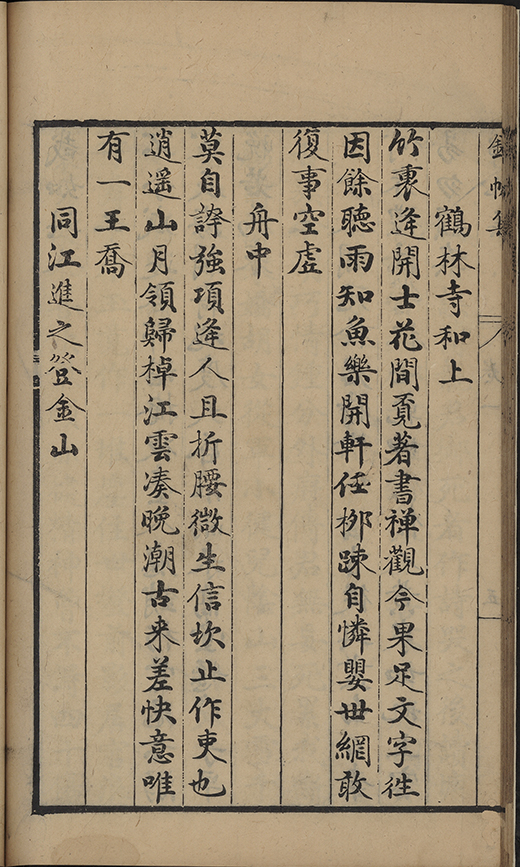 錦帆集
鶴林寺和上
竹裏逢開士花間覔著書禅觀今果足文字徃
因餘聽雨知魚樂開軒任栁踈自憐嬰世網敢
復事空虗
舟中
莫自誇強項逢人且折腰微生信坎止作吏也
逍遥山月領歸棹江雲凑晚潮古来差快意唯
有一王喬
同江進之登金山